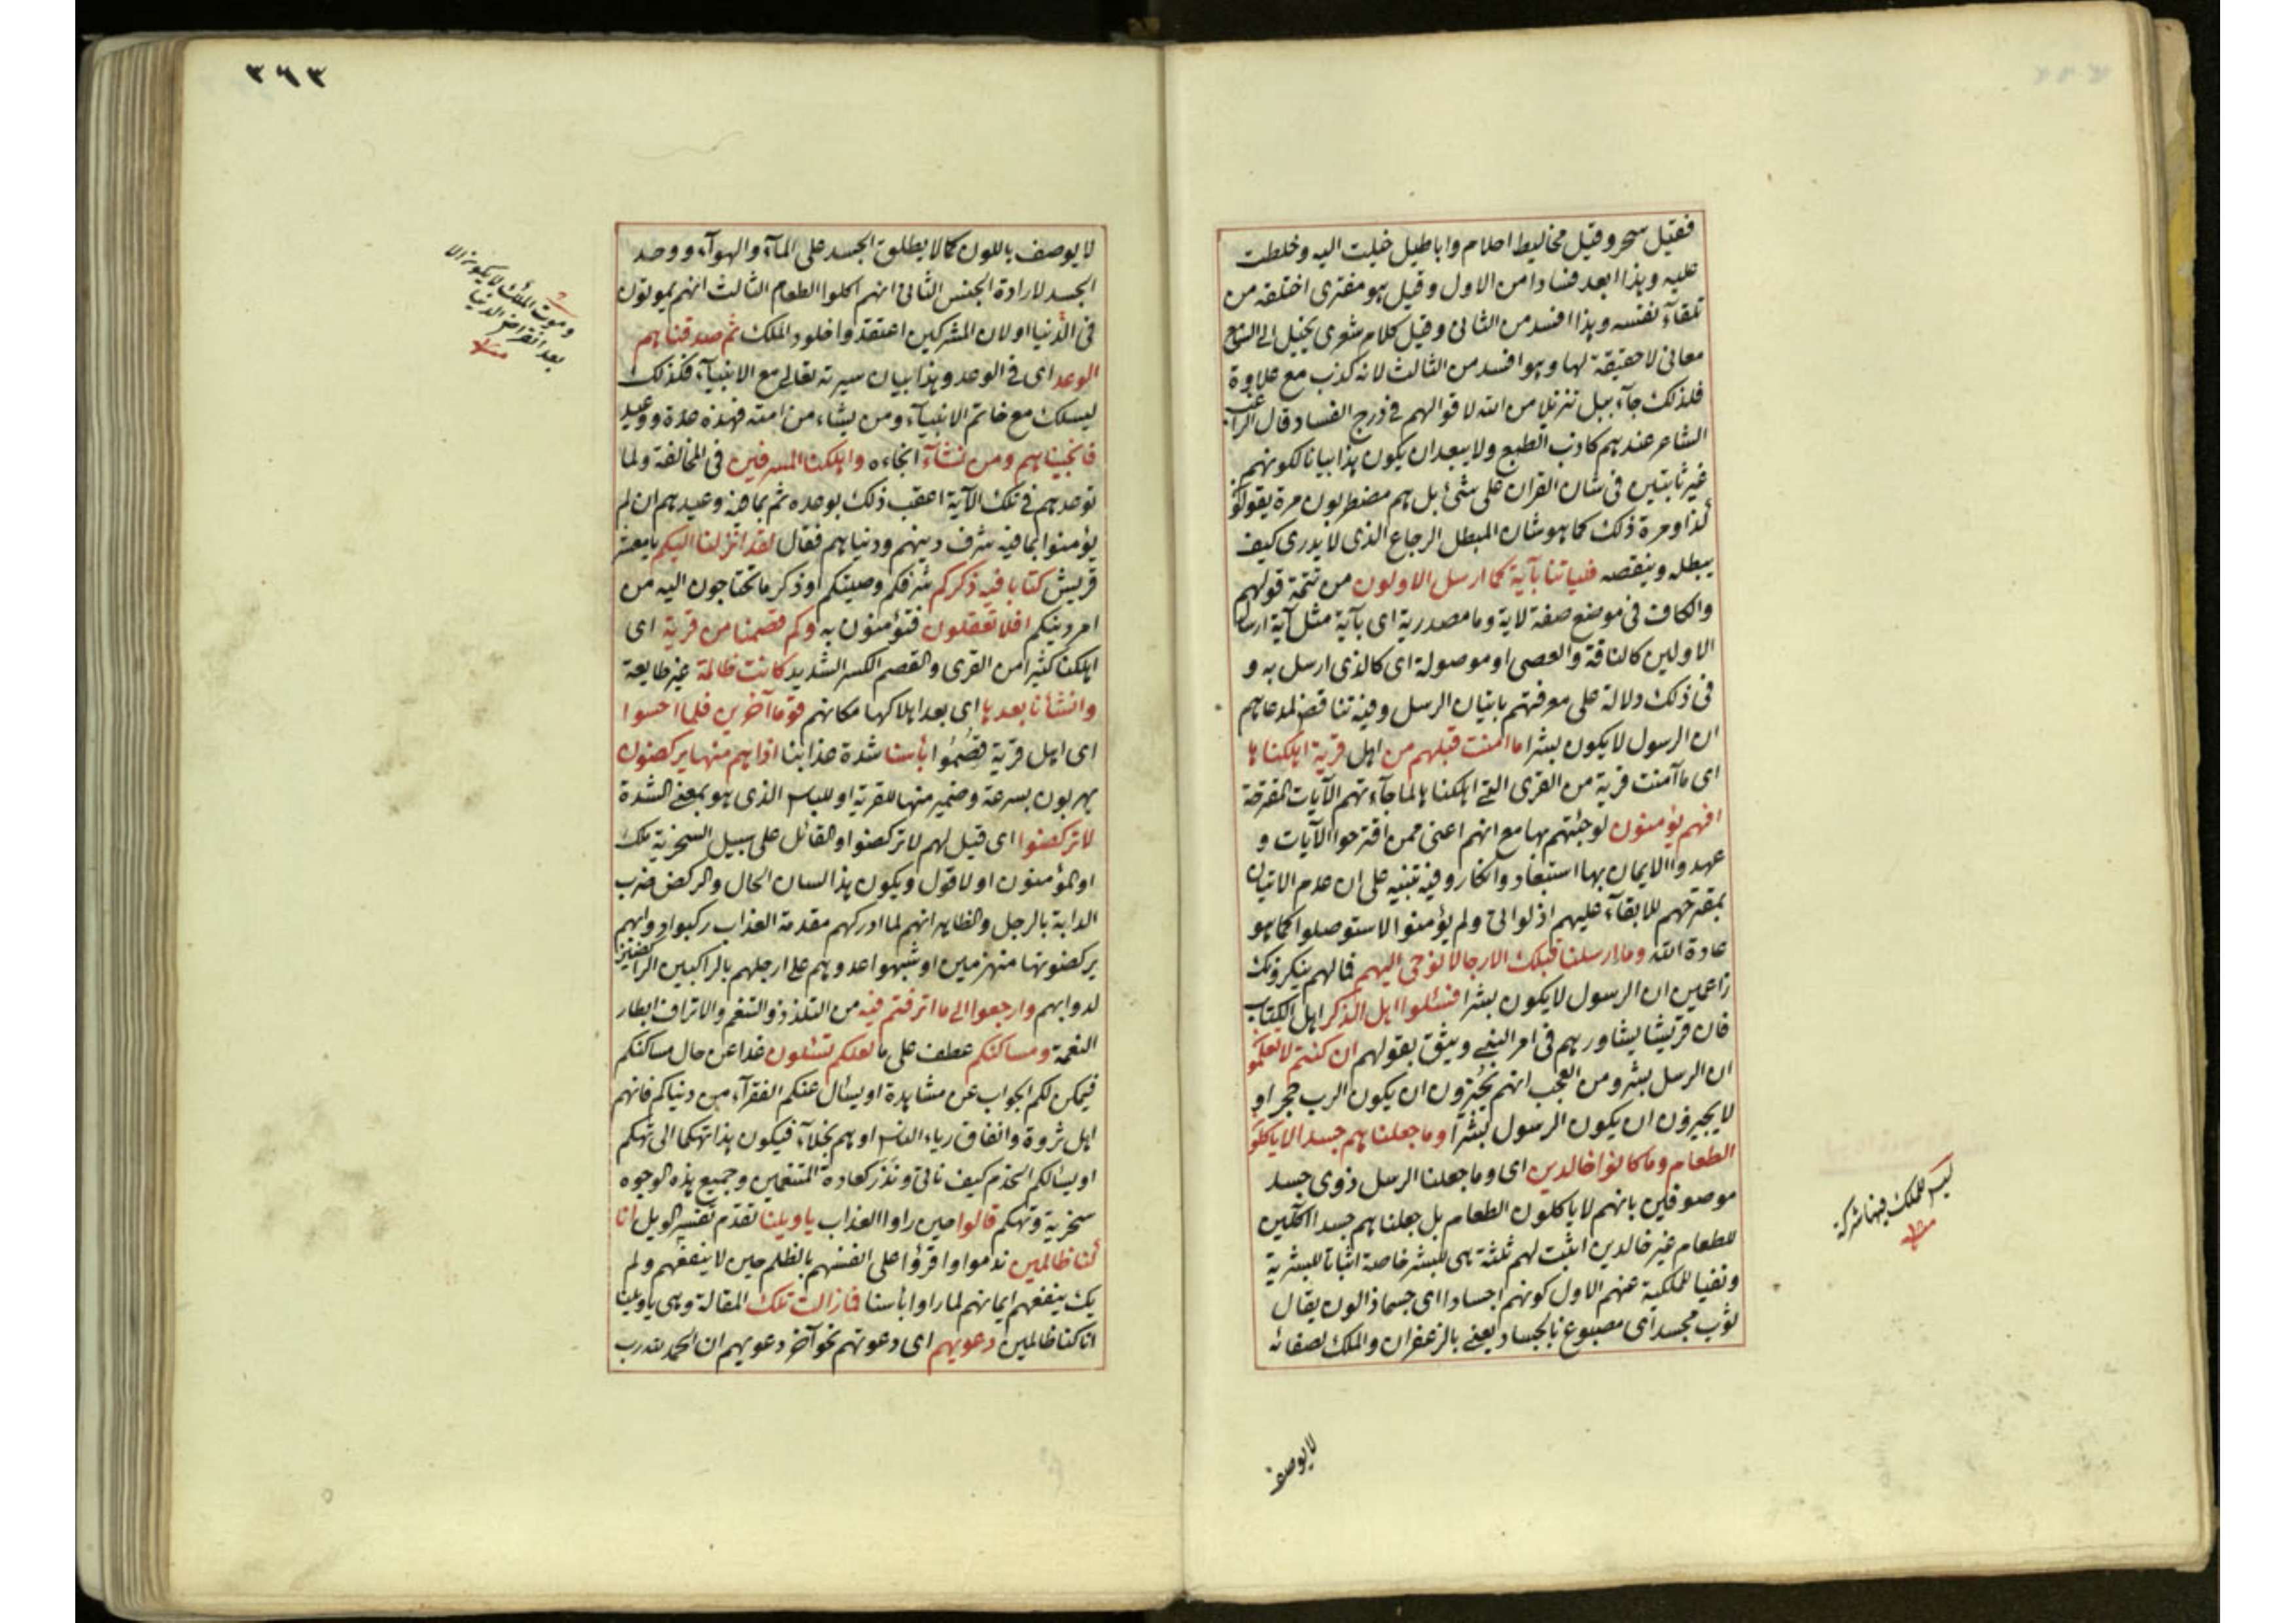 فقيل سحر وقيل مخاليط احلام واباطيل خيلت اليه وخلطت
عليه وهذا ابعد فسادا من الاول وقيل هو مفترى اختلقه من
تلقاء نفسه وهذا افسد من الثانى وقيل كلام شعرى يخيل الى السامع
معانى لا حقيقة لها وهو افسد من الثالث لانه كذب مع علاوة
فلذلك جاء ببل تنزيلا من الله لاقوالهم فى درج الفساد قال الراغب
الشاعر عندهم كاذب الطبع ولا يبعد ان يكون هذا بيانا لكونهم
غير ثابتين فى شان القران على شئ بل هم مضطربون مرة يقولون
كذا ومرة ذلك كما هو شان المبطل الرجاع الذى لا يدرى كيف
يبطله وينقصه فلياتنا بآية كما ارسل الاولون من تتمة قولهم
والكاف فى موضع صفة لاية وما مصدرية اى بآية مثل آية ارسال
الاولين كالناقة والعصى او موصولة اى كالذى ارسل به و
فى ذلك دلالة على معرفتهم باتيان الرسل وفيه تناقض لمدعاهم
ان الرسول لا يكون بشرا ما امنت قبلهم من اهل قرية اهلكناها
اى ما آمنت قرية من القرى التى اهلكناها لما جاءتهم الآيات المقترحة
افهم يؤمنون لو جئتهم بها مع انهم اعتى ممن اقترحوا الآيات و
عهدوا الايمان بها استبعاد وانكار وفيه تنبيه على ان عدم الاتيان
بمقترحهم للابقاء عليهم اذ لو اتى ولم يؤمنوا لاستوصلوا كما هو
عادة الله وما ارسلنا قبلك الا رجالا نوحى اليهم فما لهم ينكرونك
زاعمين ان الرسول لا يكون بشرا فسئلوا اهل الذكر اهل الكتاب
فان قريشا يشاورهم فى امر النبى ويثق بقولهم ان كنتم لا تعلمون
ان الرسل بشر ومن العجب انهم يجيزون ان يكون الرب حجرا و
لا يجيزون ان يكون الرسول بشرا وما جعلناهم جسدا لا ياكلون
الطعام وما كانوا خالدين اى وما جعلنا الرسل ذوى جسد
موصوفين بانهم لا ياكلون الطعام بل جعلناهم جسدا آكلين
للطعام غير خالدين اثبت لهم ثلثة هى للبشر خاصة اثباتا للبشرية
ونفيا للملكية عنهم الاول كونهم اجسادا اى جسما ذا لون يقال
ثوب مجسد اى مصبوغ بالجساد يعنى بالزعفران والملك لصفائه
ليس للملك فيها شركة
منه
لا يوصف
٣٦٣
لا يوصف باللون كما لا يطلق الجسد على الماء والهواء ووحد
الجسد لارادة الجنس الثانى انهم اكلوا الطعام الثالث انهم يموتون
فى الدنيا او لان المشركين اعتقدوا خلود الملك ثم صدقناهم
الوعد اى فى الوعد وهذا بيان سيرته تعالى مع الانبياء فكذلك
ليسلك مع خاتم الانبياء ومن يشاء من امته فهذه عدة ووعيد
فانجيناهم ومن نشاء انجاءه واهلكنا المسرفين فى المخالفة ولما
توعدهم فى تلك الآية اعقب ذلك بوعده ثم بما وعيدهم ان لم
يؤمنوا بما فيه شرف دينهم ودنياهم فقال لقد انزلنا اليكم يا معشر
قريش كتابا فيه ذكركم شرفكم وصيتكم او ذكر ما تحتاجون اليه من
امر دينكم افلا تعقلون فتؤمنون به وكم قصمنا من قرية اى
اهلكنا كثيرا من القرى والقصم الكسر الشديد كانت ظالمة غير طايعة
وانشأنا بعدها اى بعد اهلاكها مكانهم قوما آخرين فلما احسوا
اى اهل قرية قصموا بأسنا شدة عذابنا اذا هم منها يركضون
يهربون بسرعة وضمير منها للقرية او للباس الذى هو بمعنى الشدة
لا تركضوا اى قيل لهم لا تركضوا والقائل على سبيل السخرية ملك
او المؤمنون او لا قول ويكون هذا لسان الحال والركض ضرب
الدابة بالرجل والظاهر انهم لما ادركهم مقدمة العذاب ركبوا دوابهم
يركضونها منهزمين او شبهوا عدوهم على ارجلهم بالراكبين الراكضين
لدوابهم وارجعوا الى ما اترفتم فيه من التلذذ والتنعم والاتراف ابطار
النعمة ومساكنكم عطف على ما لعلكم تسئلون غدا عن حال مساكنكم
فيمكن لكم الجواب عن مشاهدة او يسال عنكم الفقراء من دنياكم فانهم
اهل ثروة وانفاق رياء الناس او هم بخلاء فيكون هذا تهكما الى تهكم
او يسالكم الخدم كيف ناتى ونذر كعادة المتنعمين وجميع هذه الوجوه
سخرية وتهكم قالوا حين راوا العذاب يا ويلنا تقدم تفسير الويل انا
كنا ظالمين ندموا واقرؤا على انفسهم بالظلم حين لا ينفعهم ولم
يك ينفعهم ايمانهم لما راوا بأسنا فما زالت تلك المقالة وهى يا ويلنا
انا كنا ظالمين دعويهم اى دعوتهم نحو آخر دعويهم ان الحمد لله رب
وموت الملائك لا يكون الا
بعد انقراض الدنيا
منه